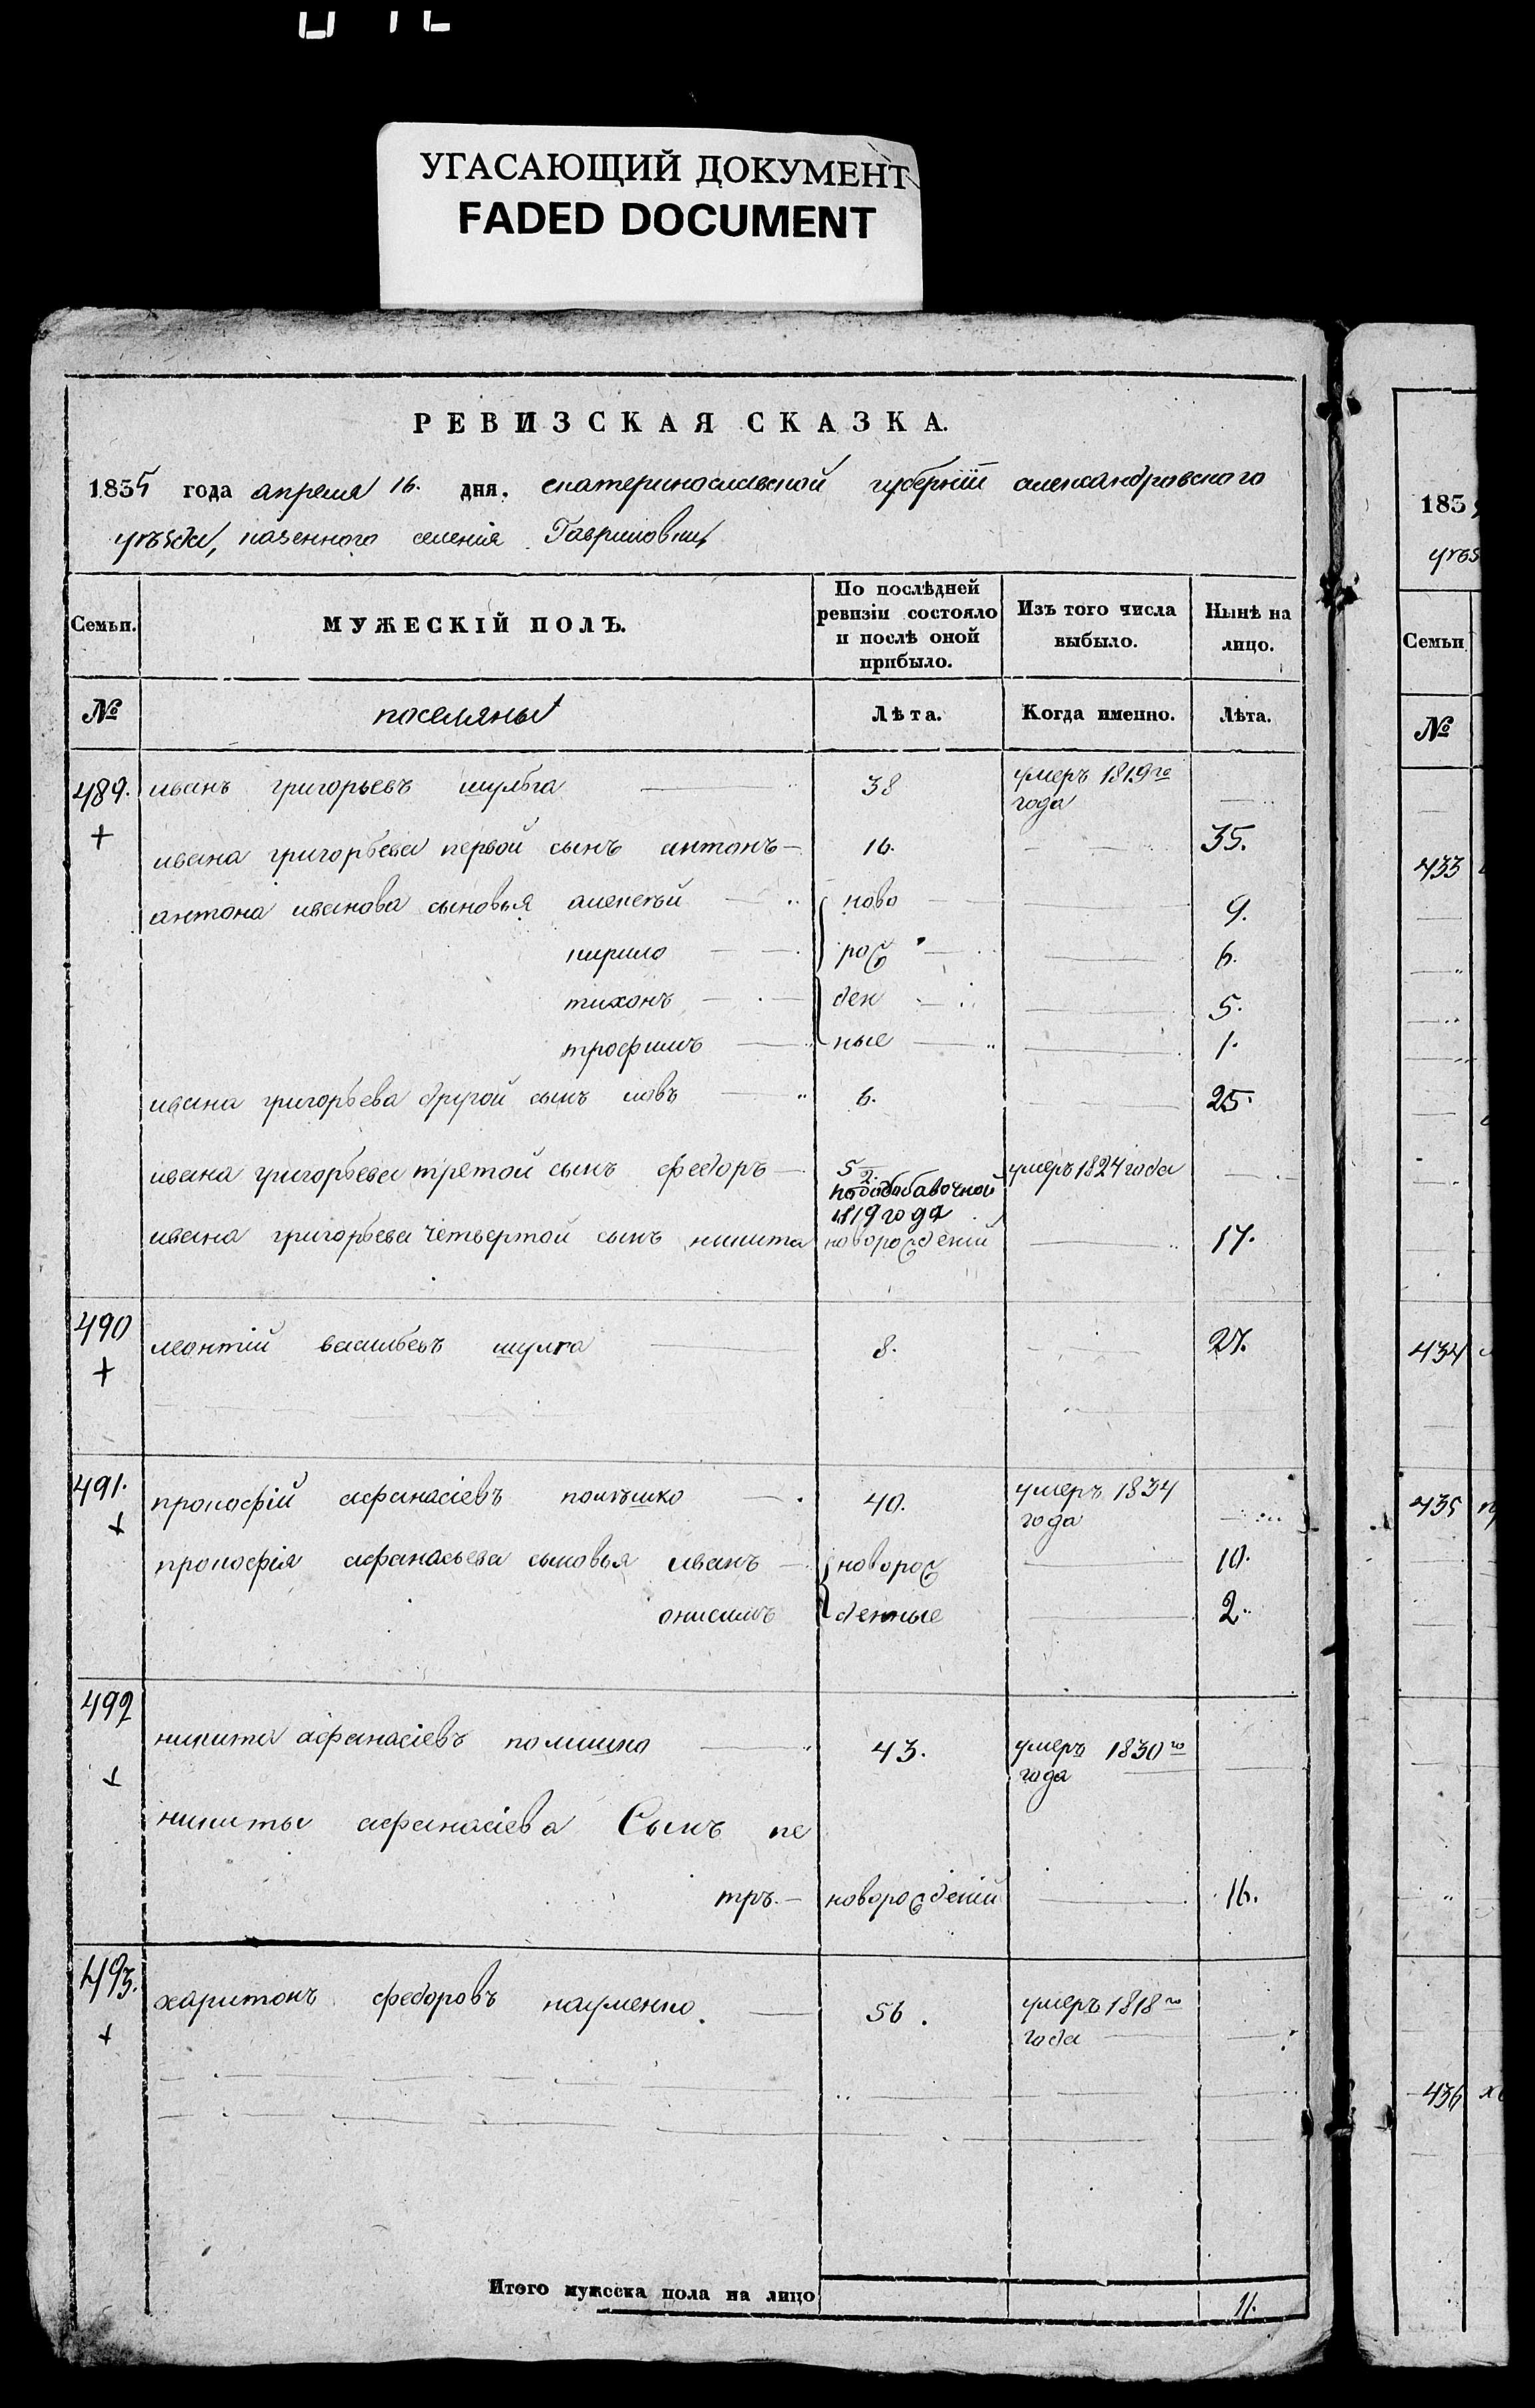 УГАСАЮЩИЙ ДОКУМЕНТ
FADED DOCUMENT
РЕВИЗСКАЯ СКАЗКА.
1835 года апреля 16. дня. екатеринославской губернїи александровского
уезда, казенного селенія Гавриловки
Семьи. МУЖЕСКІЙ ПОЛЪ. По послѣдней ревизіи состояло и послѣ оной прибыло. Изъ того числа выбыло. Нынѣ на лицо.
№ поселяны Лѣта. Когда именно. Лѣта.
489. иванъ григорьевъ шульга 38 умеръ 1819го года
ивана григорьева первой сынъ антонъ 16. 35.
антона иванова сыновья алексѣй ново 9.
кирило рож 6.
тихонъ ден 5.
трофимъ ные 1.
ивана григорьева другой сынъ 6. 25.
ивана григорьева третой сынъ федоръ 5 умеръ 1824 года
2.
1819 года
ивана григорьева четвертой сынъ никита новорожденій 17.
490 леонтій васильевъ шулга 8. 27.
491. прокофій афанасіевъ 40. умеръ 1834 года
прокофія афанасьева сыновья иванъ новорож 10.
онисимъ денные 2.
492 никита афанасіевъ 43. умеръ 1830го года
никиты афанасіева Сынъ пе
тръ. новорожденій 16.
493. харитонъ федоровъ науменко. 56. умеръ 1818го года
Итого мужеска пола на лицо 11.
183
уез
Семьи
№
433
434
435
436